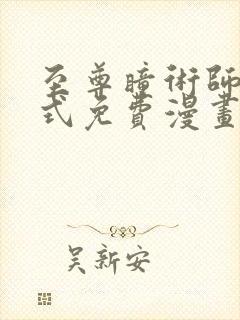 至尊暗術師
式免費漫畫
吴新安